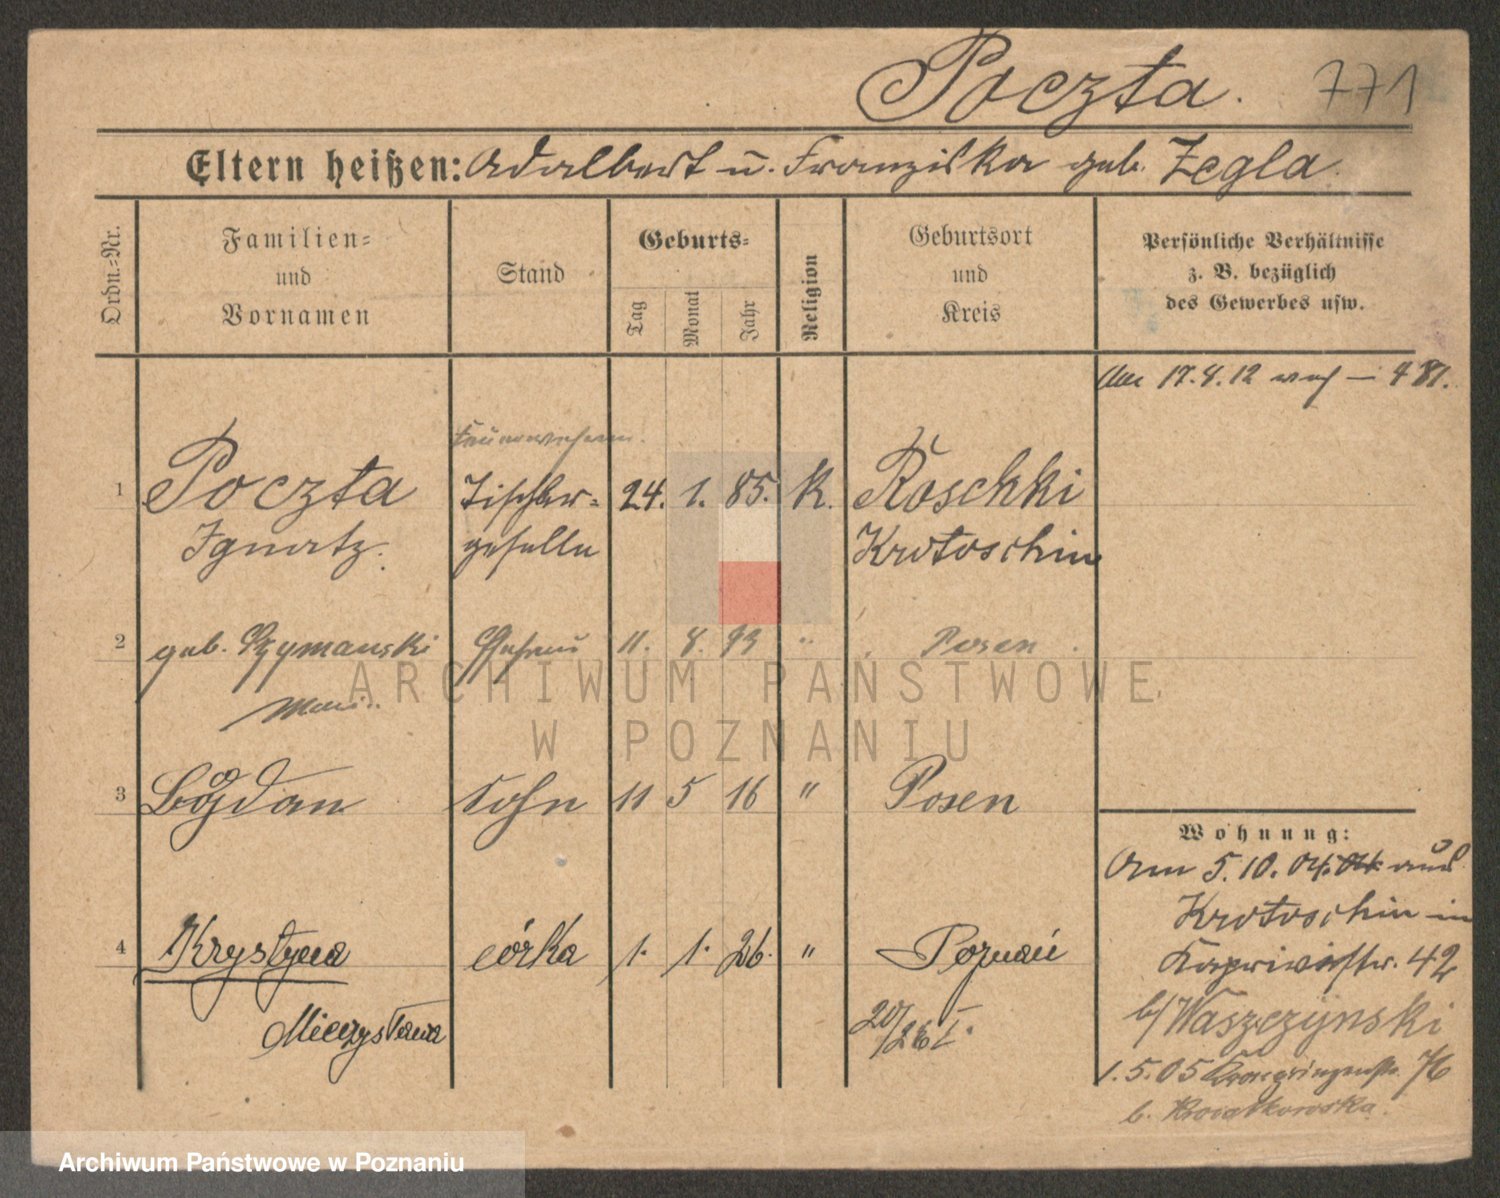 Poczta. 771
Eltern heißen: Adalbert u. Franziska geb. Zegla.
Ordn.=Nr.
Familien=
und
Vornamen
Stand
Geburts=
Tag
Monat
Jahr
Religion
Geburtsort
und
Kreis
Persönliche Verhältnisse
z. B. bezüglich
des Gewerbes usw.
17.4.12
1 Poczta Tischler= 24. 1. 85. K. Roschki
Ignatz. geselle Krotoschin
2 geb. Szymanski Ehefrau 11. 8. 93 " Posen
3 Bogdan Sohn 11 5 16 " Posen
4 Krystyna córka 1. 1. 26. " Poznań
Mieczysława
Wohnung:
Am 5.10.04. aus
Krotoschin in
Kaprivistr. 42
b/ Waszczynski
1.5.05 Kronprinzenstr. 76
b. Kwiatkowska.
ARCHIWUM PAŃSTWOWE
W POZNANIU
Archiwum Państwowe w Poznaniu